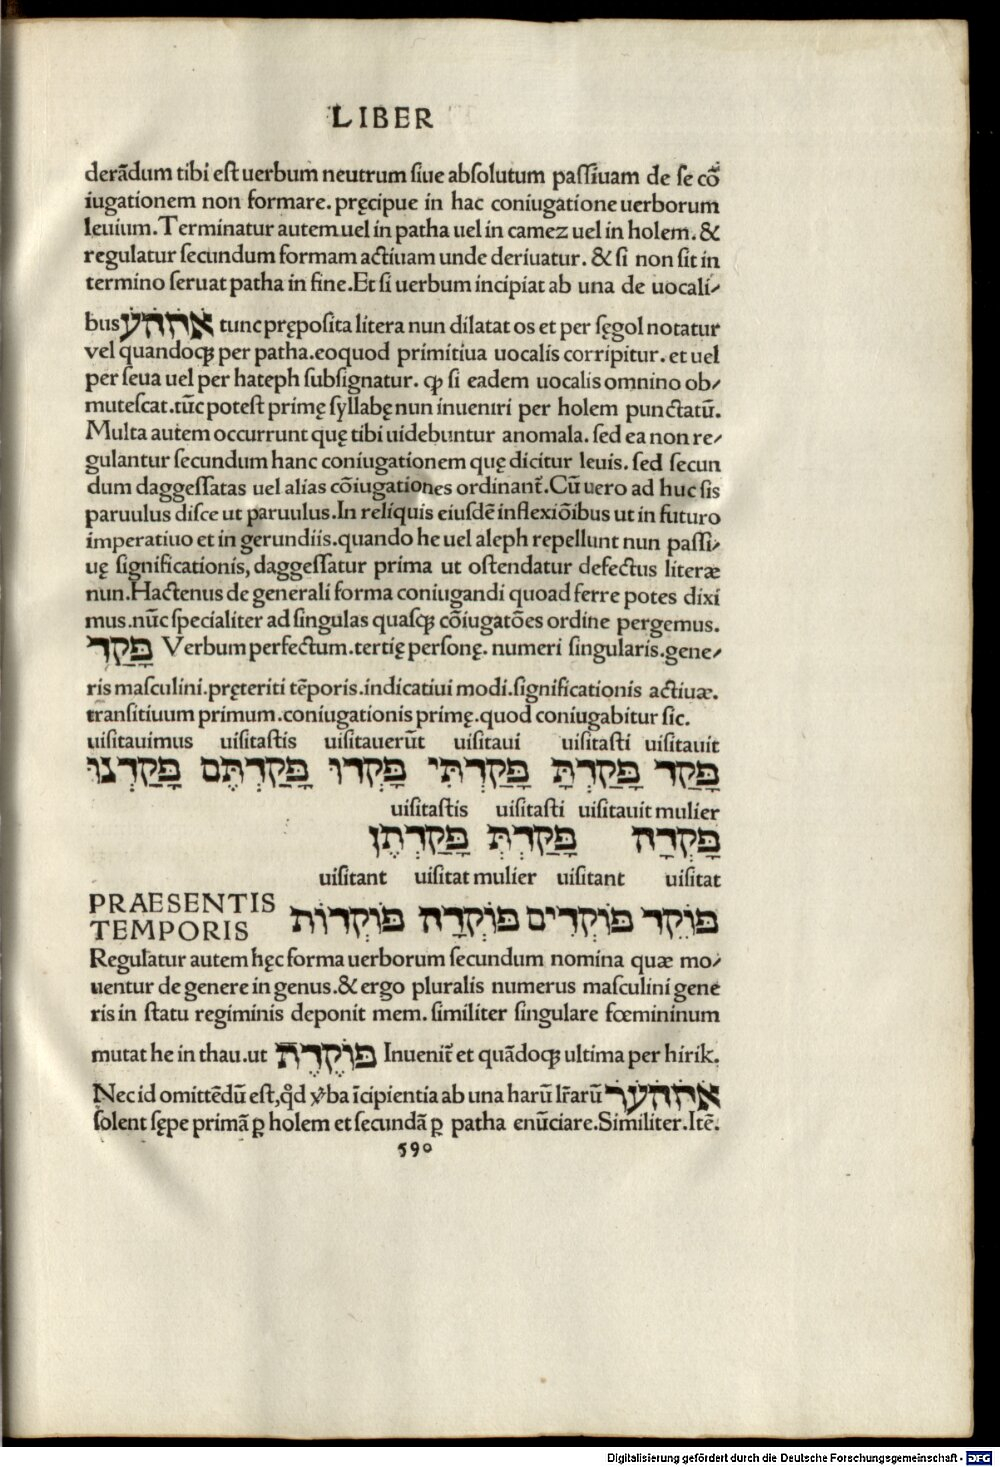 LIBER
derādum tibi est uerbum neutrum siue absolutum passiuam de se cō
iugationem non formare. pręcipue in hac coniugatione uerborum
leuium. Terminatur autem uel in patha uel in camez uel in holem. &
regulatur secundum formam actiuam unde deriuatur. & si non sit in
termino seruat patha in fine. Et si uerbum incipiat ab una de uocali⸗
bus אֹהֹחֹעֹ tunc pręposita litera nun dilatat os et per sęgol notatur
vel quandoqꝫ per patha. eoquod primitiua uocalis corripitur. et uel
per seua uel per hateph subsignatur. ꝙ si eadem uocalis omnino ob⸗
mutescat. tūc potest primę syllabę nun inueniri per holem punctatū.
Multa autem occurrunt quę tibi uidebuntur anomala. sed ea non re⸗
gulantur secundum hanc coniugationem quę dicitur leuis. sed secun
dum daggessatas uel alias cōiugationes ordinant̄. Cū uero ad huc sis
paruulus disce ut paruulus. In reliquis eiusdē inflexiōibus ut in futuro
imperatiuo et in gerundiis. quando he uel aleph repellunt nun passi⸗
uę significationis, daggessatur prima ut ostendatur defectus literæ
nun. Hactenus de generali forma coniugandi quoad ferre potes dixi
mus. nūc specialiter ad singulas quasqꝫ cōiugatōes ordine pergemus.
פָּקַד Verbum perfectum. tertię personę. numeri singularis. gene⸗
ris masculini. pręteriti tēporis. indicatiui modi. significationis actiuæ.
transitiuum primum. coniugationis primę. quod coniugabitur sic.
uisitauimus uisitastis uisitauerūt uisitaui uisitasti uisitauit
פָּקַד פָּקַדְתָּ פָּקַדְתִּי פָּקְדוּ פָּקַדְתֶּם פָּקַדְנוּ
uisitastis uisitasti uisitauit mulier
פָּקְדָה פָּקַדְתְּ פָּקַדְתֶן
uisitant uisitat mulier uisitant uisitat
PRAESENTIS
TEMPORIS
פּוֹקֵד פּוֹקְדִים פּוֹקְדָה פּוֹקְדוֹת
Regulatur autem hęc forma uerborum secundum nomina quæ mo⸗
uentur de genere in genus. & ergo pluralis numerus masculini gene
ris in statu regiminis deponit mem. similiter singulare fœmininum
mutat he in thau. ut פּוֹקֶדֶת Inuenit̄ et quādoqꝫ ultima per hirik.
Nec id omittēdū est, qd̄ ꝟba īcipientia ab una harū lr̄arū אֹהֹחֹעֹר
solent sępe primā ꝑ holem et secundā ꝑ patha enūciare. Similiter. Itē.
590
Digitalisierung gefördert durch die Deutsche Forschungsgemeinschaft - DFG